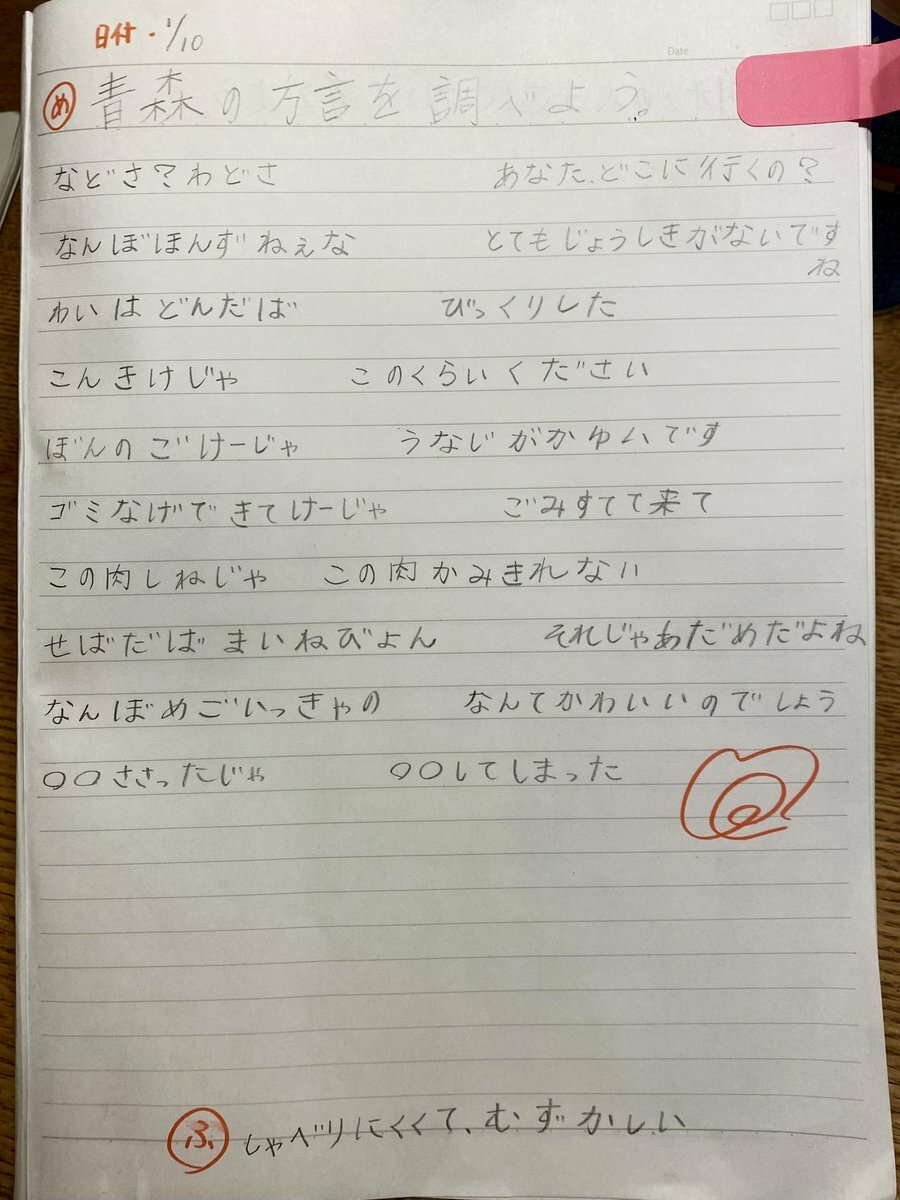 日付・1/10
Date
め 青森の方言を調べよう。
などさ?わどさ あなた、どこに行くの?
なんぼほんずねぇな とてもじょうしきがないですね
わいはどんだば びっくりした
こんきけじゃ このくらいください
ぼんのごけーじゃ うなじがかゆいです
ゴミなげできてけーじゃ ごみすてて来て
この肉しねじゃ この肉かみきれない
せばだばまいねびょん それじゃあだめだよね
なんぼめごいっきゃの なんてかわいいのでしょう
〇〇ささったじゃ 〇〇してしまった
ふ しゃべりにくくて、むずかしい